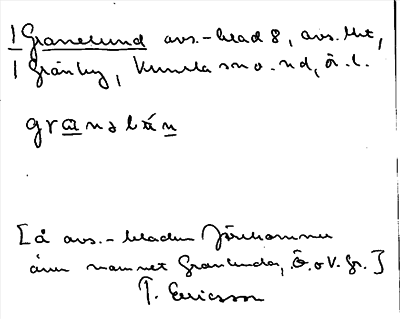 1 Granelund avs.-blad 8, avs. lht,
1 Gränby, Kumla sn o. nd, ö. l.
granəlún
[å avs.-bladen
även namnet Granlunda, Ö. o V. Gr.]
T. Ericsson